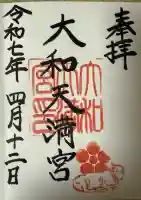 奉拝
大和天満宮
令和七年 四月十二日